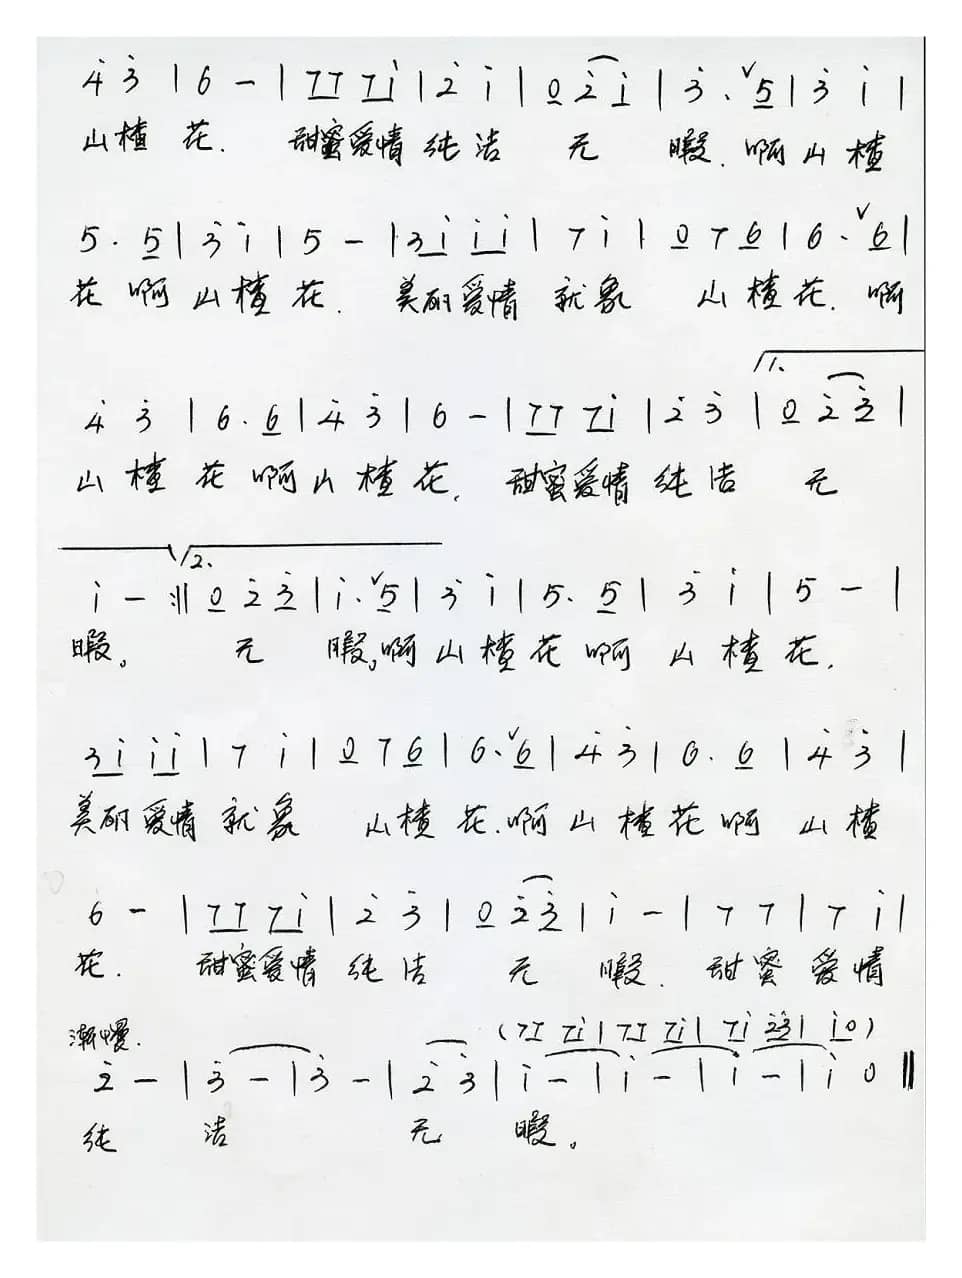 4̇ 3̇ | 6 - | 7 7 7 i | 2̇ i | 0 2̇ i | 3̇. ∨5 | 3̇ i |
山楂 花. 甜蜜爱情纯洁 无 暇. 啊山楂
5. 5 | 3̇ i | 5 - | 3̇ i i i | 7 i | 0 7 6 | 6. ∨6 |
花 啊山楂花. 美丽爱情就象 山楂花. 啊
/1.
4̇ 3̇ | 6. 6 | 4̇ 3̇ | 6 - | 7 7 7 i | 2̇ 3̇ | 0 2̇ 3̇ |
山楂花啊山楂花. 甜蜜爱情纯洁 无
/2.
i - :‖ 0 2̇ 3̇ | i. ∨5 | 3̇ i | 5. 5 | 3̇ i | 5 - |
暇。 无 暇。啊山楂花啊 山楂花.
3̇ i i i | 7 i | 0 7 6 | 6. ∨6 | 4̇ 3̇ | 6. 6 | 4̇ 3̇ |
美丽爱情就象 山楂花. 啊山楂花啊 山楂
6 - | 7 7 7 i | 2̇ 3̇ | 0 2̇ 3̇ | i - | 7 7 | 7 i |
花. 甜蜜爱情纯洁 无 暇. 甜蜜爱情
渐慢. (7 7 7 i | 7 7 7 i | 7 i 2̇ 3̇ | i 0)
2̇ - | 3̇ - | 3̇ - | 2̇ 3̇ | i - | i - | i - | i 0 ‖
纯 洁 无 暇。